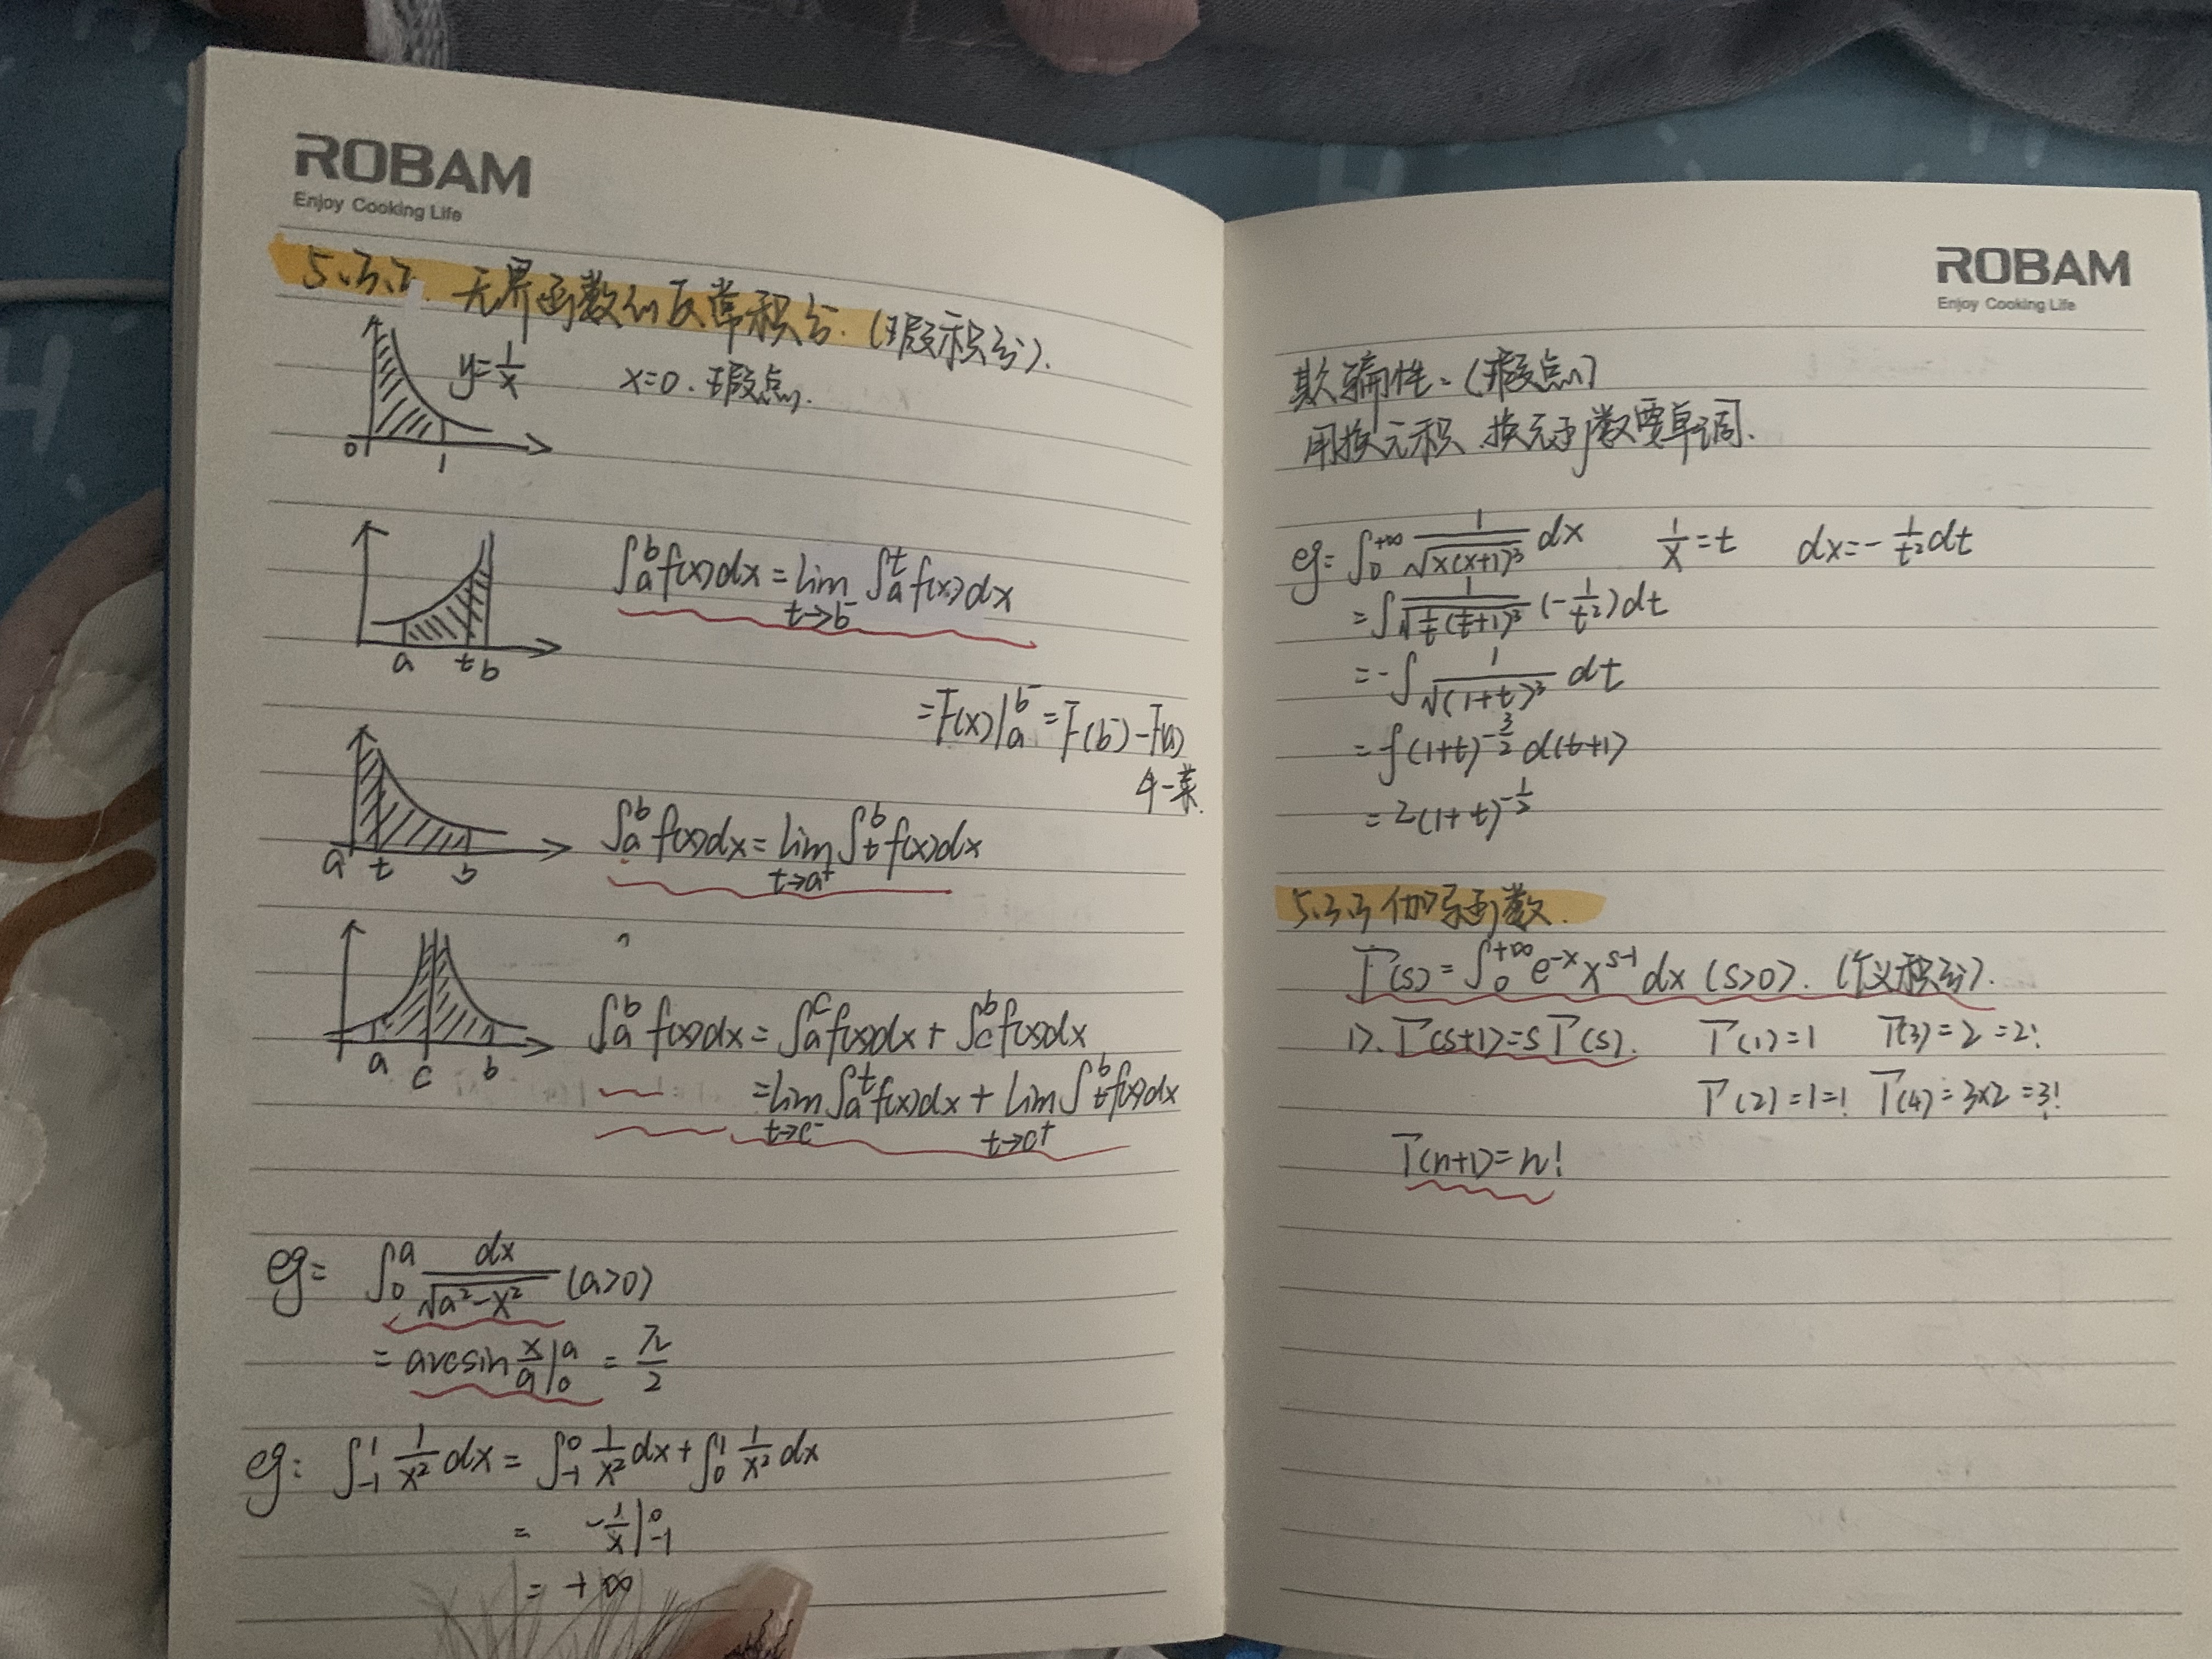 ROBAM
Enjoy Cooking Life
5.3.2. 无界函数的反常积分.(瑕积分).
y=1/x x=0.瑕点.
0 1
∫_a^b f(x)dx=lim_{t→b⁻}∫_a^t f(x)dx
a t b
=F(x)|_a^{b⁻}=F(b⁻)-F(a)
a t b
∫_a^b f(x)dx=lim_{t→a⁺}∫_t^b f(x)dx
∫_a^b f(x)dx=∫_a^c f(x)dx+∫_c^b f(x)dx
a c b
=lim_{t→c⁻}∫_a^t f(x)dx+lim_{t→c⁺}∫_t^b f(x)dx
eg: ∫_0^a dx/√(a²-x²) (a>0)
=arcsin x/a|_0^a = π/2
eg: ∫_{-1}^1 1/x² dx=∫_{-1}^0 1/x² dx+∫_0^1 1/x² dx
= -1/x|_{-1}^0
= +∞
ROBAM
Enjoy Cooking Life
欺骗性.(瑕点)
用换元积.换元函数要单调.
eg: ∫_0^{+∞} 1/√(x(x+1)³) dx 1/x=t dx=-1/t² dt
=∫1/√(1/t(1/t+1)³) (-1/t²)dt
=-∫1/√((1+t)³) dt
=∫(1+t)^{-3/2} d(t+1)
=2(1+t)^{-1/2}
5.3.3 伽马函数.
Γ(s)=∫_0^{+∞} e^{-x} x^{s-1} dx (s>0).(广义积分).
1). Γ(s+1)=sΓ(s). Γ(1)=1 Γ(3)=2=2!
Γ(2)=1=! Γ(4)=3×2=3!
Γ(n+1)=n!